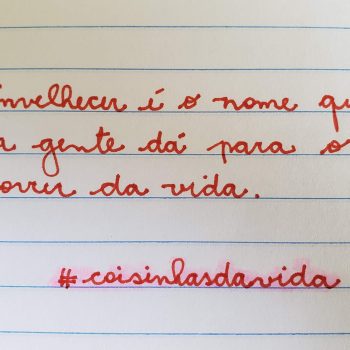 envelhecer é o nome qu
a gente dá para o
orrer da vida.
#coisinhasdavida